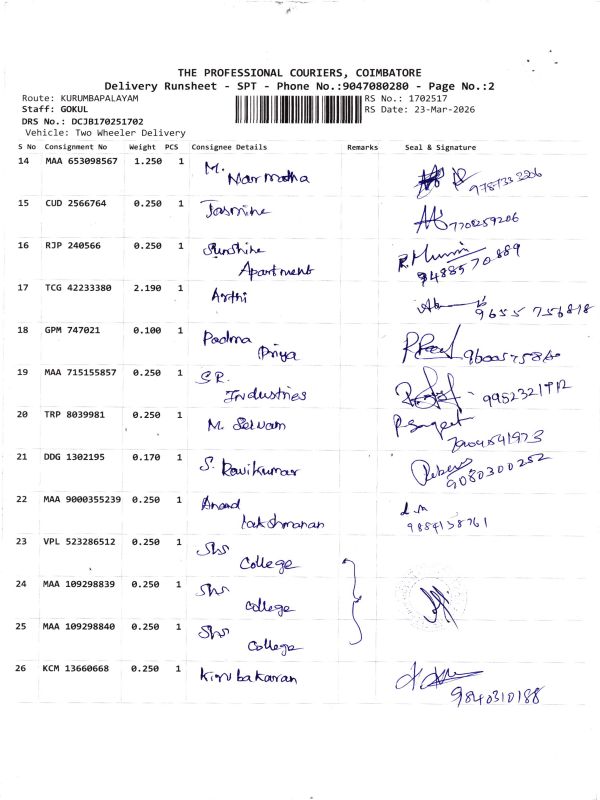 THE PROFESSIONAL COURIERS, COIMBATORE
Delivery Runsheet - SPT - Phone No.:9047080280 - Page No.:2
Route: KURUMBAPALAYAM RS No.: 1702517
Staff: GOKUL RS Date: 23-Mar-2026
DRS No.: DCJB170251702
Vehicle: Two Wheeler Delivery
S No Consignment No Weight PCS Consignee Details Remarks Seal & Signature
14 MAA 653098567 1.250 1 M.
Narmatha
15 CUD 2566764 0.250 1 Jasmine
7708259206
16 RJP 240566 0.250 1 Sunshine
Apartment
9488570889
17 TCG 42233380 2.190 1 Arthi
9655 756818
18 GPM 747021 0.100 1 Padma
Priya
9600575860
19 MAA 715155857 0.250 1 S.R.
Industries
9952321912
20 TRP 8039981 0.250 1 M. Selvam
21 DDG 1302195 0.170 1 S. Ravikumar
9080300252
22 MAA 9000355239 0.250 1 Anand
lakshmanan
9884138761
23 VPL 523286512 0.250 1 SNS
College
24 MAA 109298839 0.250 1 SNS
College
25 MAA 109298840 0.250 1 SNS
College
26 KCM 13660668 0.250 1 Kirubakaran
9840310188